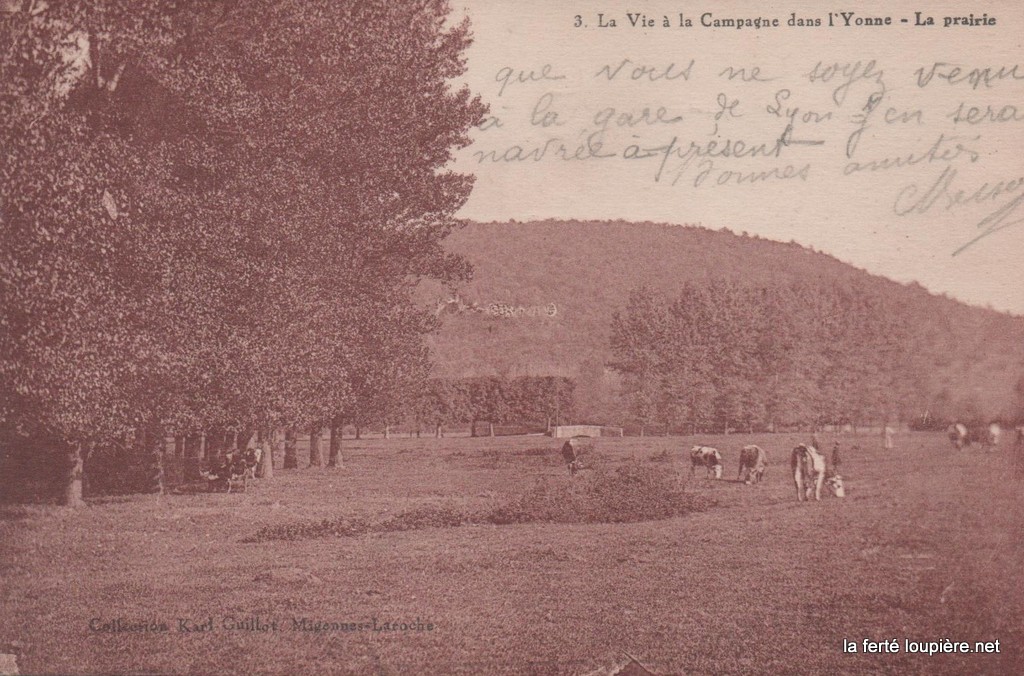 3. La Vie à la Campagne dans l'Yonne - La prairie
que vous ne soyez venu
à la gare de Lyon j'en serai
navrée à présent
bonnes amitiés
Collection Karl Guillot, Migennes-Laroche
la ferté loupière.net